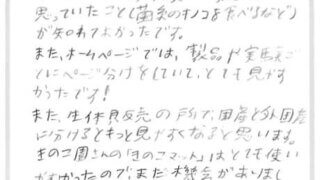 思っていたこと(菌糸のキノコを食べるなど)
が知れてよかったです。
また、ホームページでは、製品や実験ご
とにページ分けをしていて、とても見やす
かったです!
また、生体販売の所で、国産と外国産
に分けるともっと見やすくなると思います。
きのこ園さんの「きのこマット」はとても使い
がすかったので、また機会がありまし